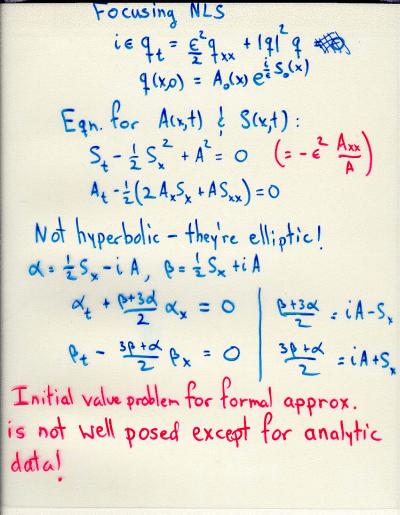 Focusing NLS
iε q_t = ε²/2 q_xx + |q|² q
q(x,0) = A₀(x) e^{i/ε S₀(x)}
Eqn. for A(x,t) & S(x,t):
S_t - ½ S_x² + A² = 0 (= -ε² A_xx/A)
A_t - ½(2A_x S_x + A S_xx) = 0
Not hyperbolic – they're elliptic!
α = ½ S_x - iA, β = ½ S_x + iA
α_t + (β+3α)/2 α_x = 0 | (β+3α)/2 = iA - S_x
β_t - (3β+α)/2 β_x = 0 | (3β+α)/2 = iA + S_x
Initial value problem for formal approx.
is not well posed except for analytic
data!